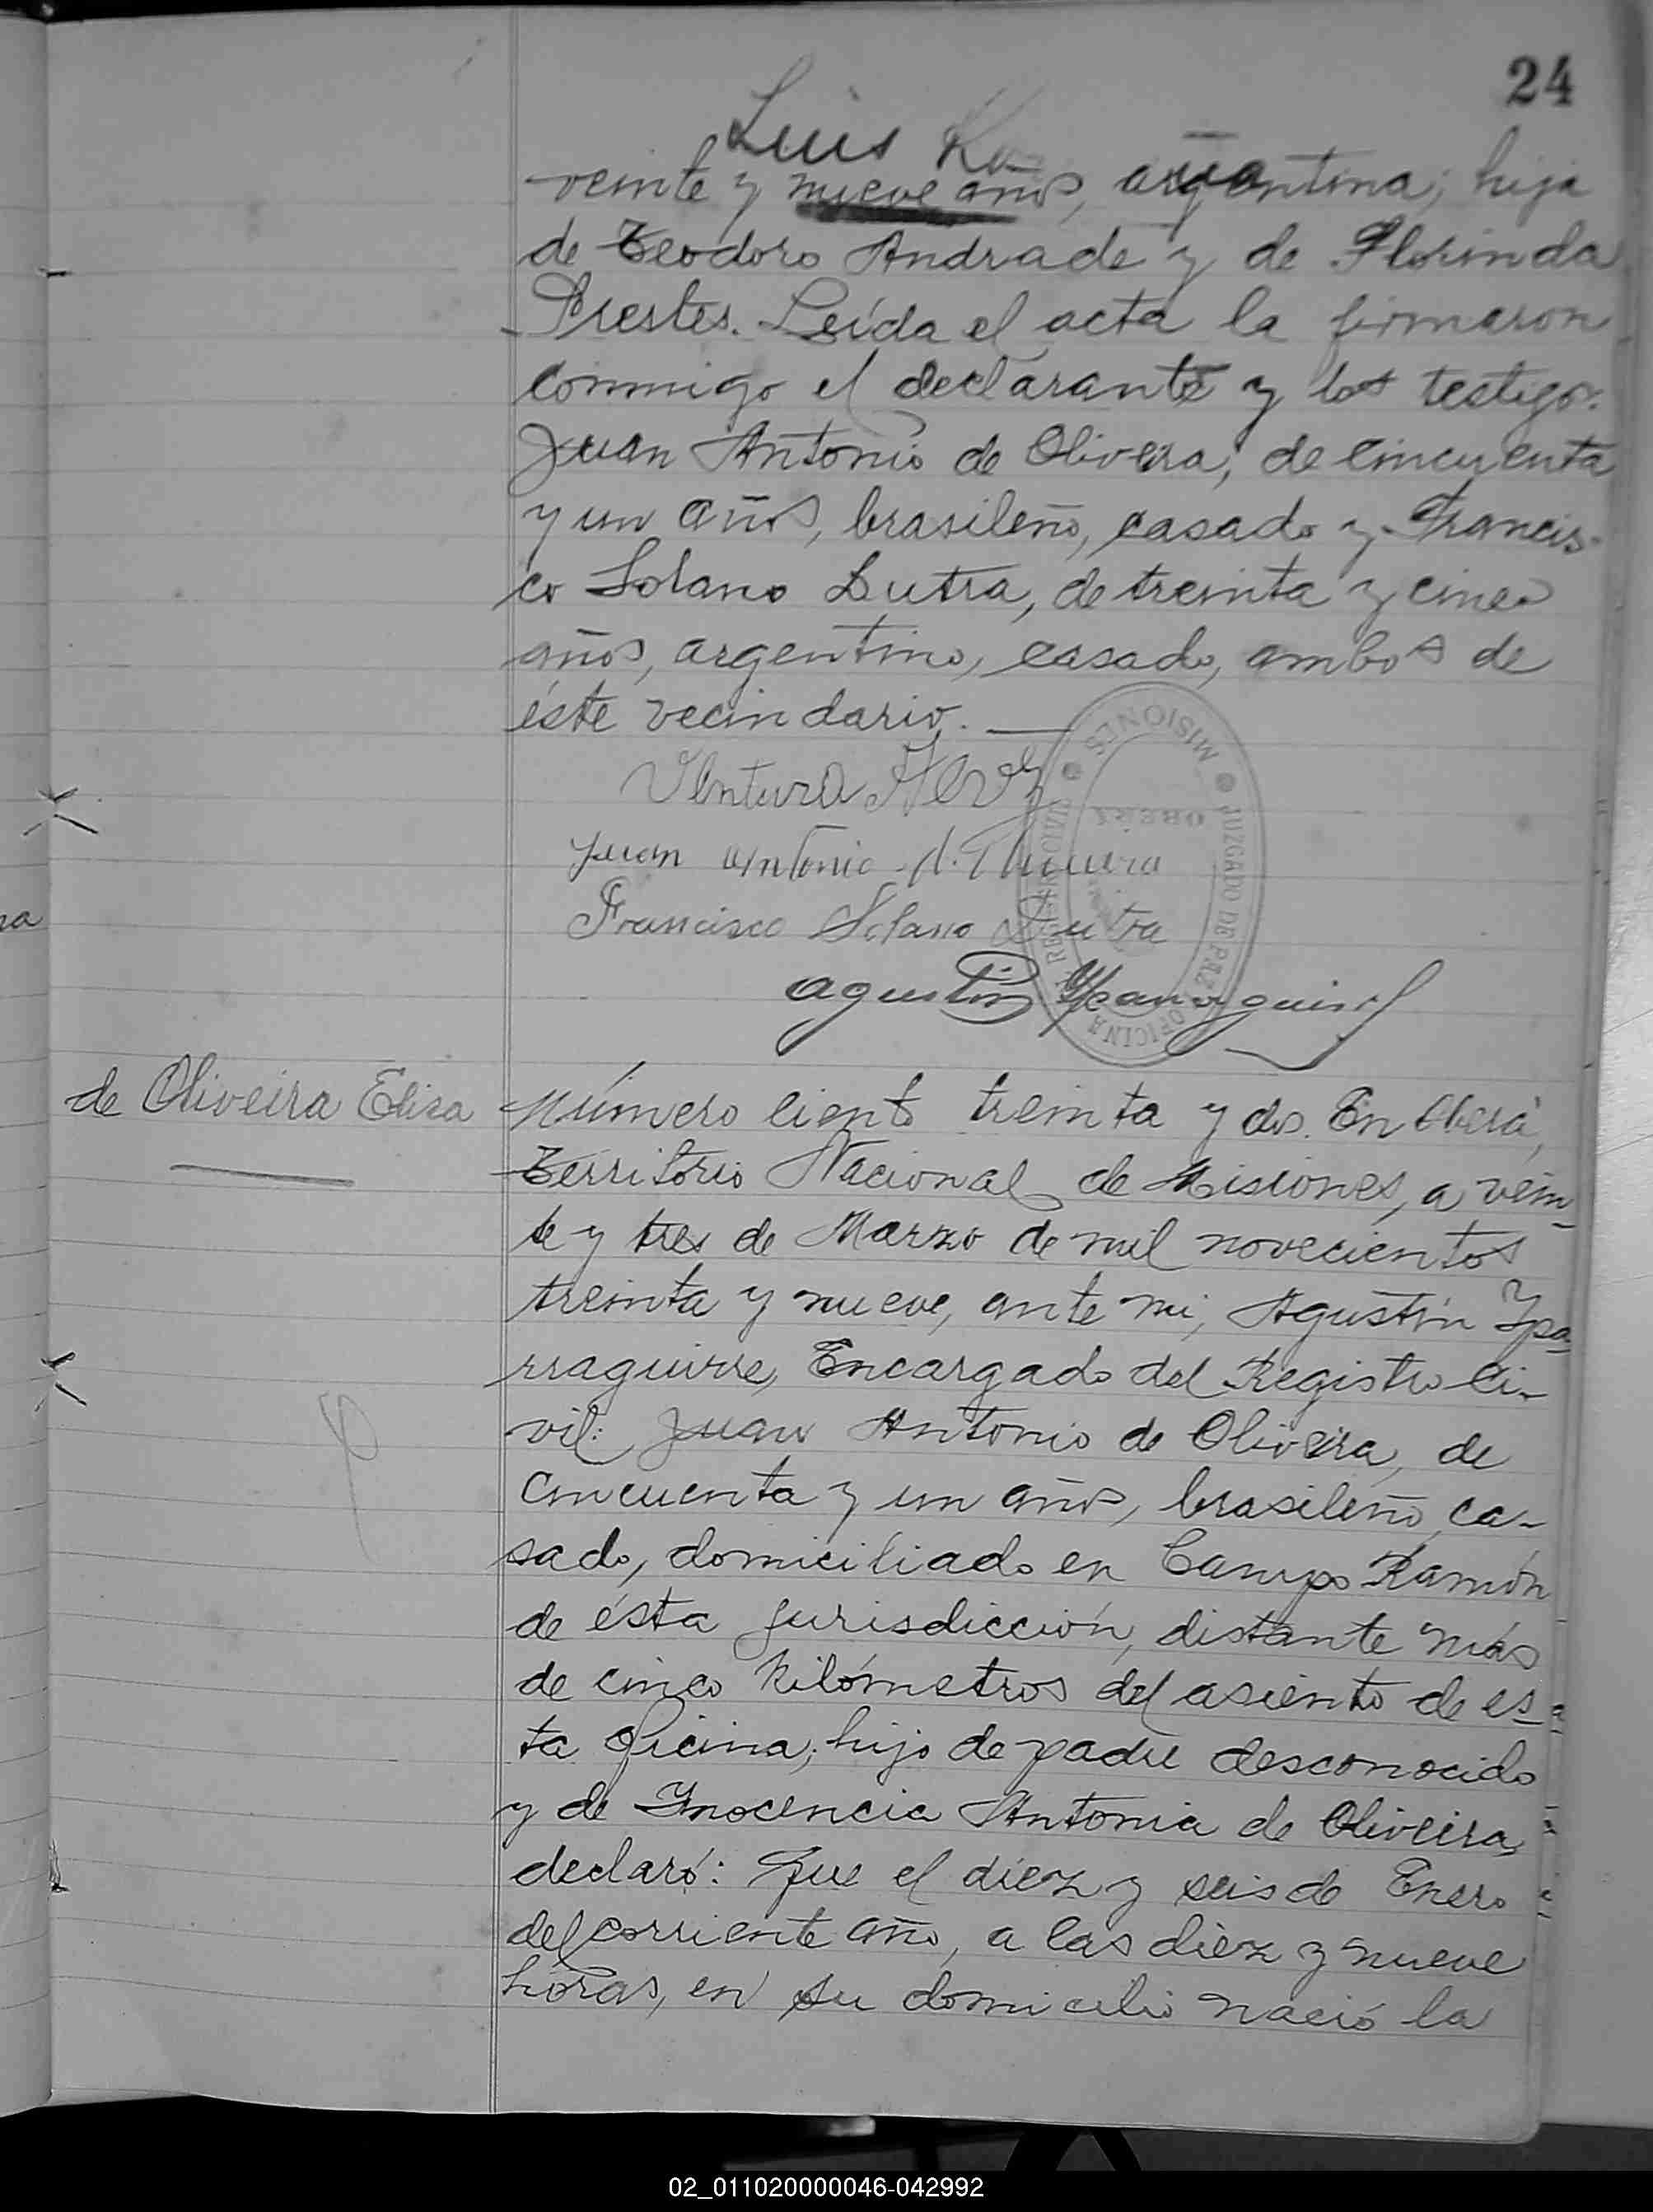 24
Luis
veinte y nueve años, argentina; hija
de Teodoro Andrade y de Florinda
Prestes. Leída el acta la firmaron
conmigo el declarante y los testigos:
Juan Antonio de Oliveira, de cincuenta
y un años, brasileño, casado y Francis-
co Solano Dutra, de treinta y cinco
años, argentino, casado, ambos de
éste vecindario.
Ventura
Juan Antonio d.
Francisco Solano Dutra
Agustin Yparraguirre
MISIONES
JUZGADO DE PAZ
OFICINA REGISTRO CIVIL
OBERÁ
de Oliveira Elisa
Número ciento treinta y dos. En Oberá,
Territorio Nacional de Misiones, a vein-
te y tres de Marzo de mil novecientos
treinta y nueve, ante mi, Agustín Ypa-
rraguirre, Encargado del Registro Ci-
vil: Juan Antonio de Oliveira, de
cincuenta y un años, brasileño, ca-
sado, domiciliado en Campo Ramón
de ésta jurisdicción, distante más
de cinco kilómetros del asiento de es-
ta oficina; hijo de padre desconocido
y de Inocencia Antonia de Oliveira,
declaró: Que el diez y seis de Enero
del corriente año, a las diez y nueve
horas, en su domicilio nació la
02_011020000046-042992